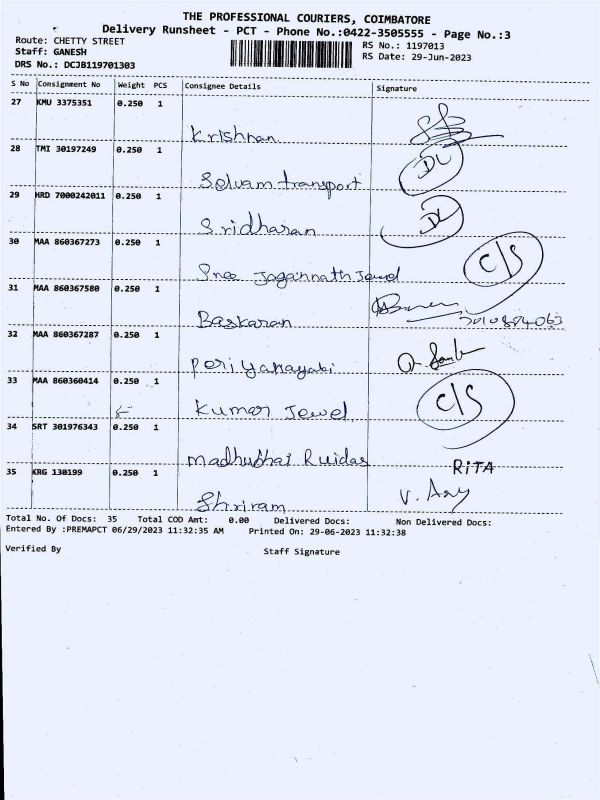 THE PROFESSIONAL COURIERS, COIMBATORE
Delivery Runsheet - PCT - Phone No.:0422-3505555 - Page No.:3
Route: CHETTY STREET
RS No.: 1197013
Staff: GANESH
RS Date: 29-Jun-2023
DRS No.: DCJB119701303
S No Consignment No Weight PCS Consignee Details Signature
27 KMU 3375351 0.250 1
Krishnan
28 TMI 30197249 0.250 1
Selvam transport DL
29 HRD 7000242011 0.250 1
Sridharan DL
30 MAA 860367273 0.250 1
Sree Jagannath Jewel C/S
31 MAA 860367580 0.250 1
Baskaran
32 MAA 860367287 0.250 1
Periyanayaki
33 MAA 860360414 0.250 1
Kumar Jewel C/S
34 SRT 301976343 0.250 1
Madhubhai Ruidas RITA
35 KRG 130199 0.250 1
Shriram
Total No. Of Docs: 35 Total COD Amt: 0.00 Delivered Docs: Non Delivered Docs:
Entered By :PREMAPCT 06/29/2023 11:32:35 AM Printed On: 29-06-2023 11:32:38
Verified By Staff Signature